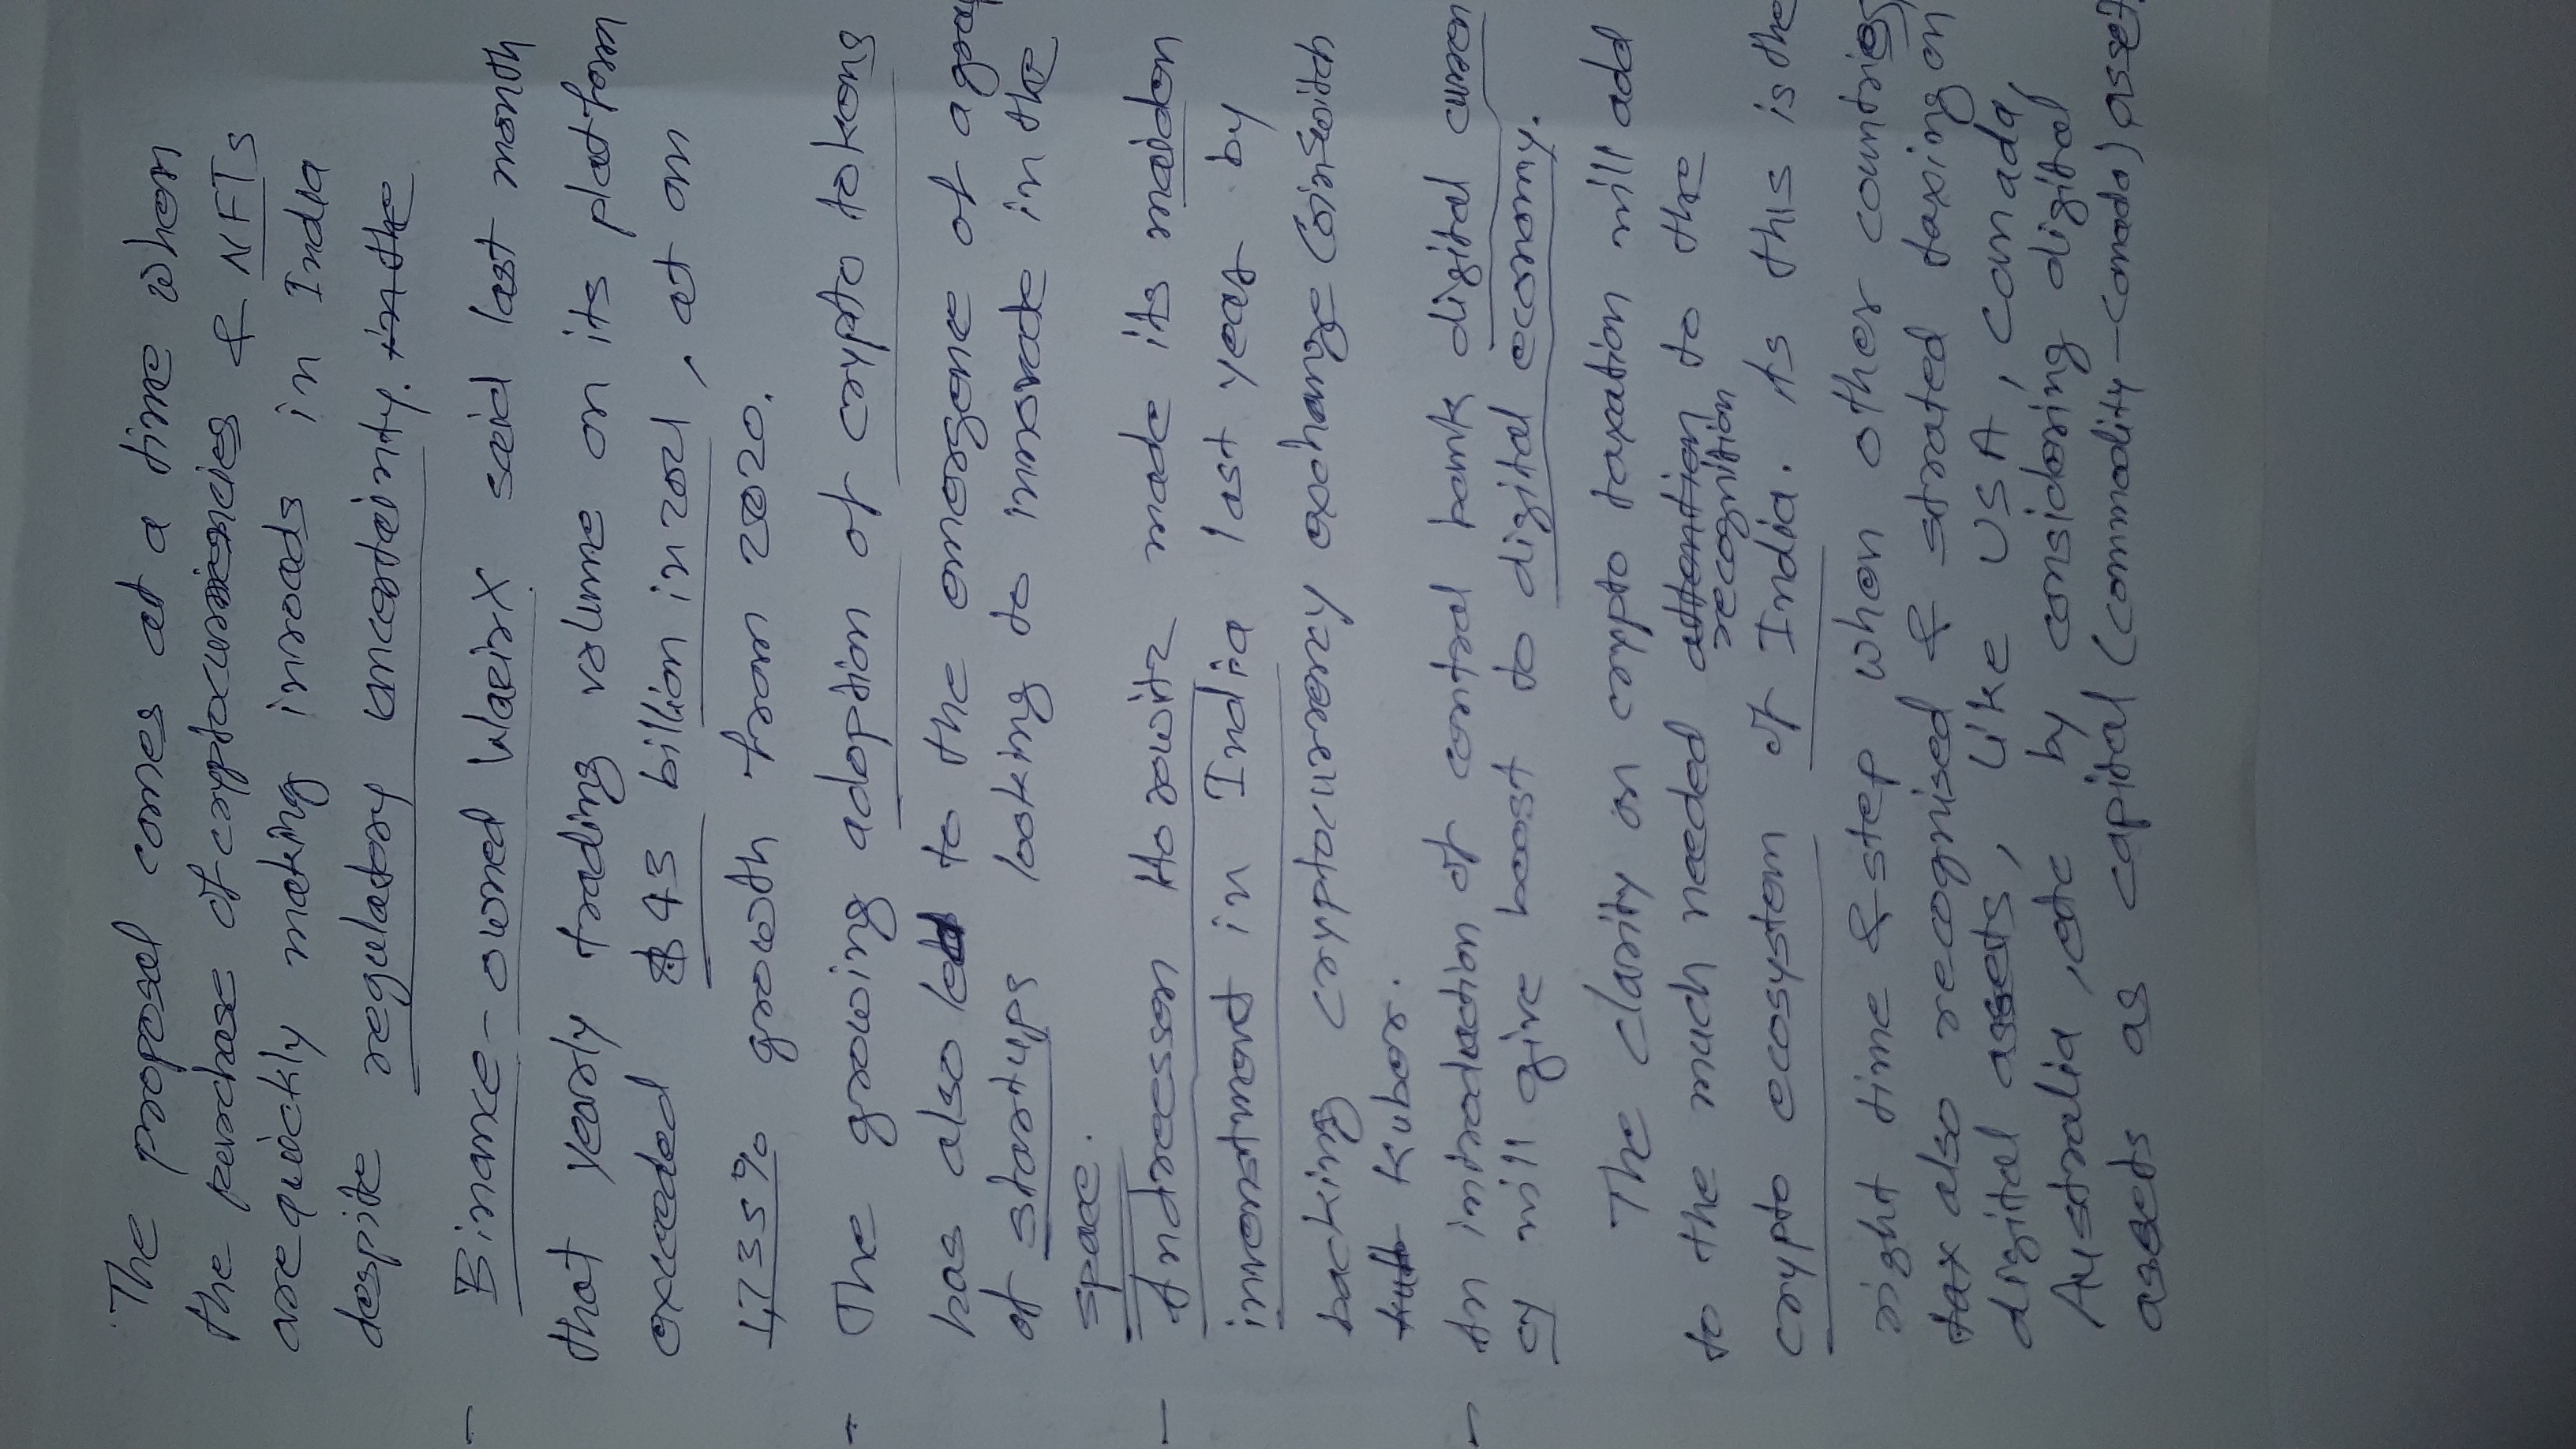 The proposal comes at a time when
the purchase of cryptocurrencies & NFTs
are quickly making inroads in India
despite regulatory uncertainty. in the
- Binance-owned WazirX said last month
that yearly trading volume on its platform
exceeded $43 billion in 2021, at an
1,735% growth from 2020.
- The growing adoption of crypto tokens
has also led to the emergence of a
of startups looking to in the
space.
- Andreessen Horowitz made its maiden
investment in India last year by
backing cryptocurrency exchange Coinswitch
Kuber.
- An introduction of central bank digital curren
cy will give boost to digital economy.
The clarity on crypto taxation will add
to the much needed attention to the
recognition
crypto ecosystem of India. its this is the
right time & step when other countries
tax also recognised & strated taxing on
digital assets, like USA, Canada,
Australia, etc by considering digital
assets as capital (commodity-canada) asset.